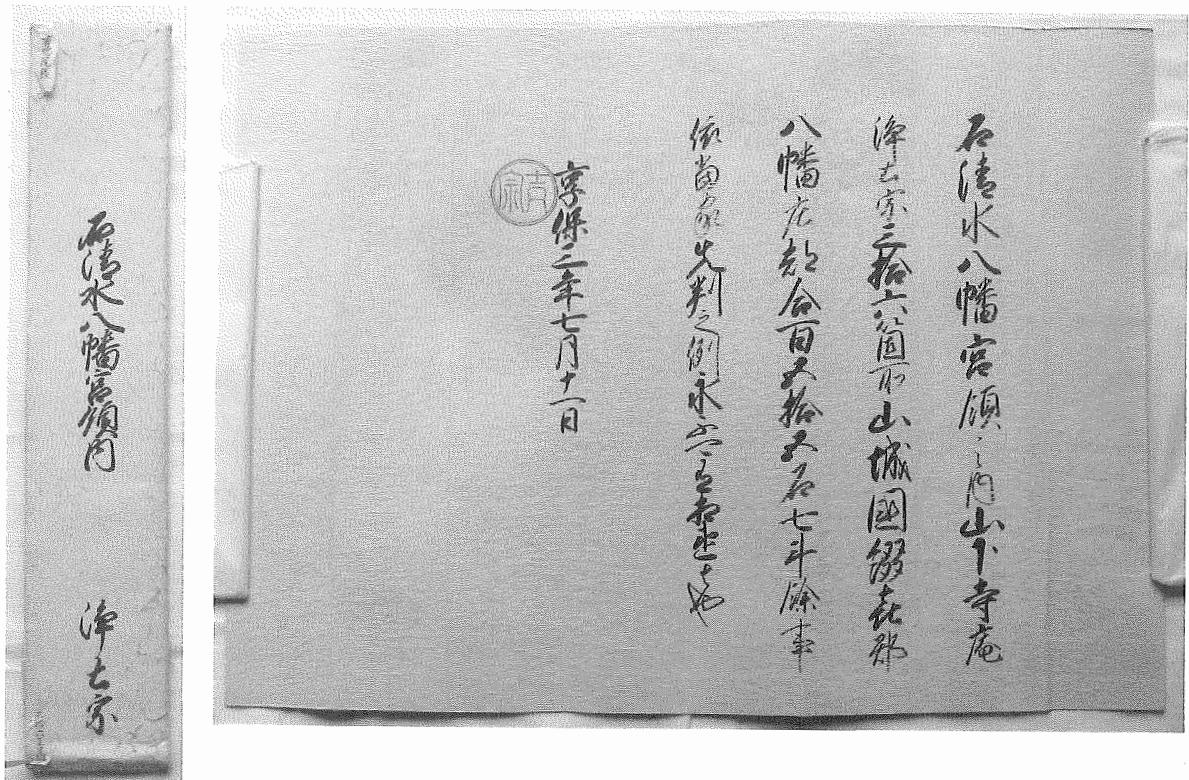 石清水八幡宮領之内山下寺庵
浄土宗三拾六箇所山城國綴喜郡
八幡庄都合百五拾五石七斗餘事
依當家先判之例永不可有相違者也
享保三年七月十一日
吉宗
石清水八幡宮領内
浄土宗